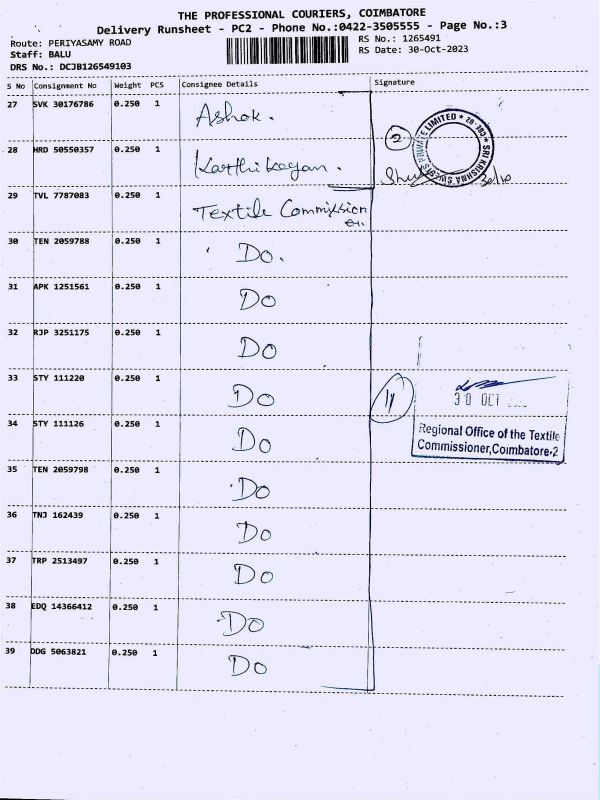 THE PROFESSIONAL COURIERS, COIMBATORE
Delivery Runsheet - PC2 - Phone No.:0422-3505555 - Page No.:3
Route: PERIYASAMY ROAD
RS No.: 1265491
Staff: BALU
RS Date: 30-Oct-2023
DRS No.: DCJB126549103
S No Consignment No Weight PCS Consignee Details Signature
27 SVK 30176786 0.250 1 Ashok.
28 HRD 50550357 0.250 1 Karthikeyan.
2
PRIVATE LIMITED * SRI KRISHNA SWEETS
29 TVL 7787083 0.250 1 Textile Commission
er.
30 TEN 2059788 0.250 1 Do.
31 APK 1251561 0.250 1 Do
32 RJP 3251175 0.250 1 Do
33 STY 111220 0.250 1 Do
11
30 OCT
34 STY 111126 0.250 1 Do
Regional Office of the Textile
Commissioner,Coimbatore-2
35 TEN 2059798 0.250 1 Do
36 TNJ 162439 0.250 1 Do
37 TRP 2513497 0.250 1 Do
38 EDQ 14366412 0.250 1 Do
39 DDG 5063821 0.250 1 Do